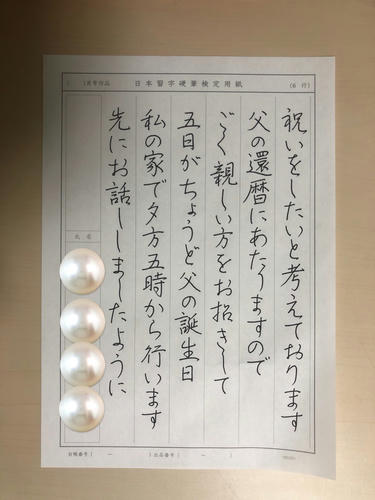 月号作品 日本習字硬筆検定用紙 (6 行)
祝いをしたいと考えております
父の還暦にあたりますので
ごく親しい方をお招きして
五日がちょうど父の誕生日
私の家で夕方五時から行います
先にお話ししましたように
氏名
出品番号